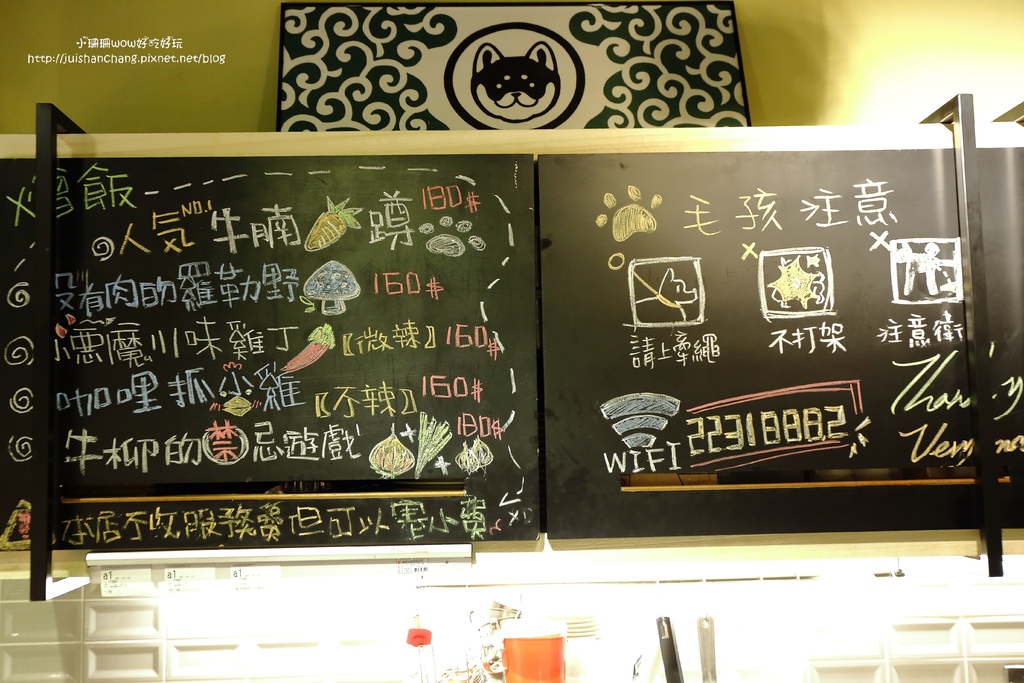 小珊珊wow好吃好玩
http://juishanchang.pixnet.net/blog
燉飯
人氣NO.1 牛腩 蹲 180#
沒有肉的羅勒野 160#
小惡魔川味雞丁【微辣】160#
咖哩抓小雞【不辣】160#
牛柳的禁忌遊戲 180#
本店不收服務費但可以賞小費
毛孩注意
請上牽繩
不打架
注意衛
WIFI 22318882
Thank
Very
a1
a1
a1